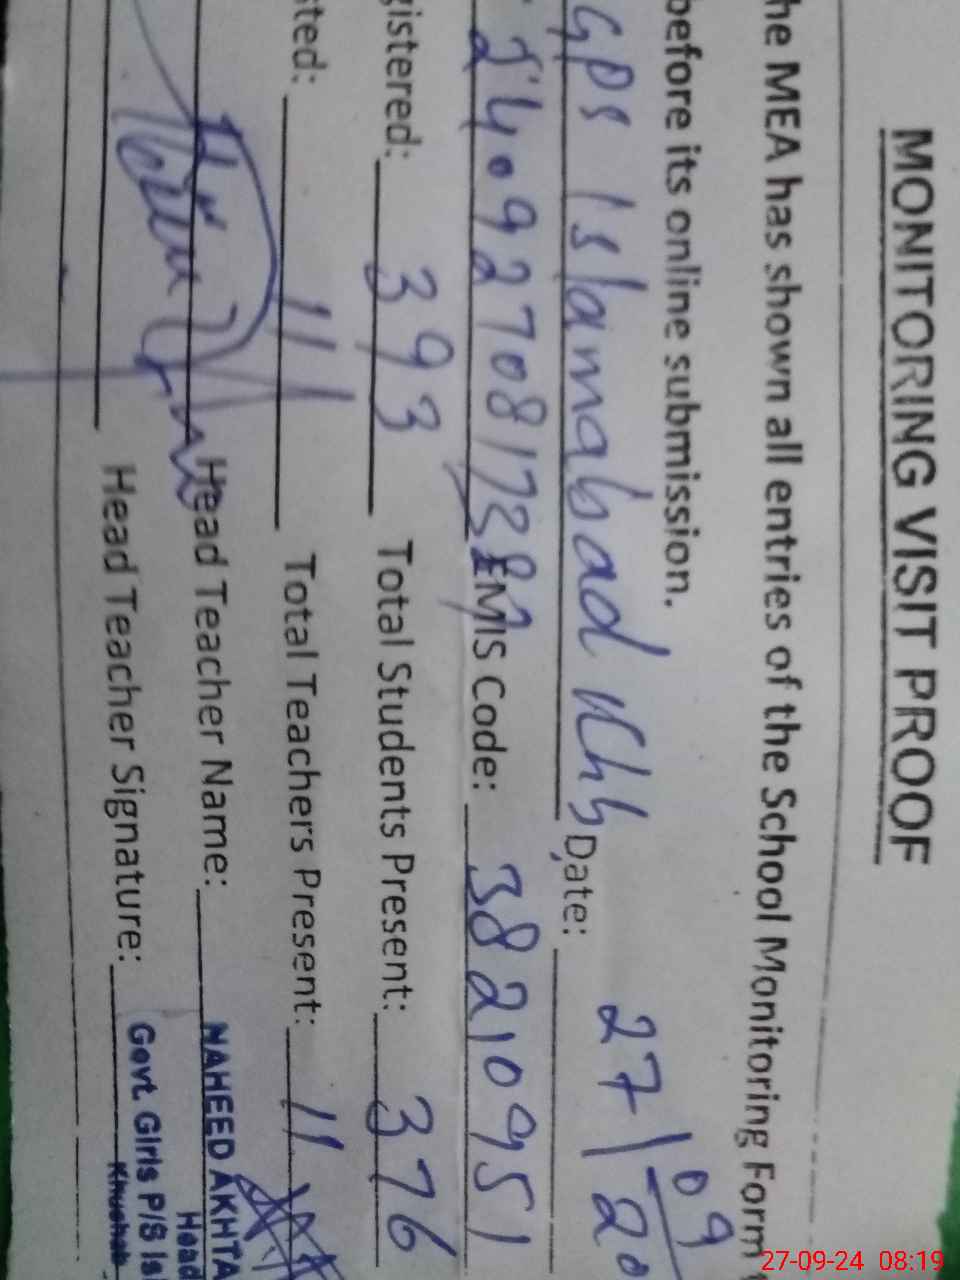 MONITORING VISIT PROOF
he MEA has shown all entries of the School Monitoring Form
before its online submission.
GPS Islamabad Khb Date: 27/09/20
EMIS Code: 38210951
gistered: 393 Total Students Present: 376
ted: 11 Total Teachers Present: 11
Head Teacher Name: NAHEED AKHTA
Head
Head Teacher Signature: Govt. Girls P/S Isl
Khushab
27-09-24 08:19